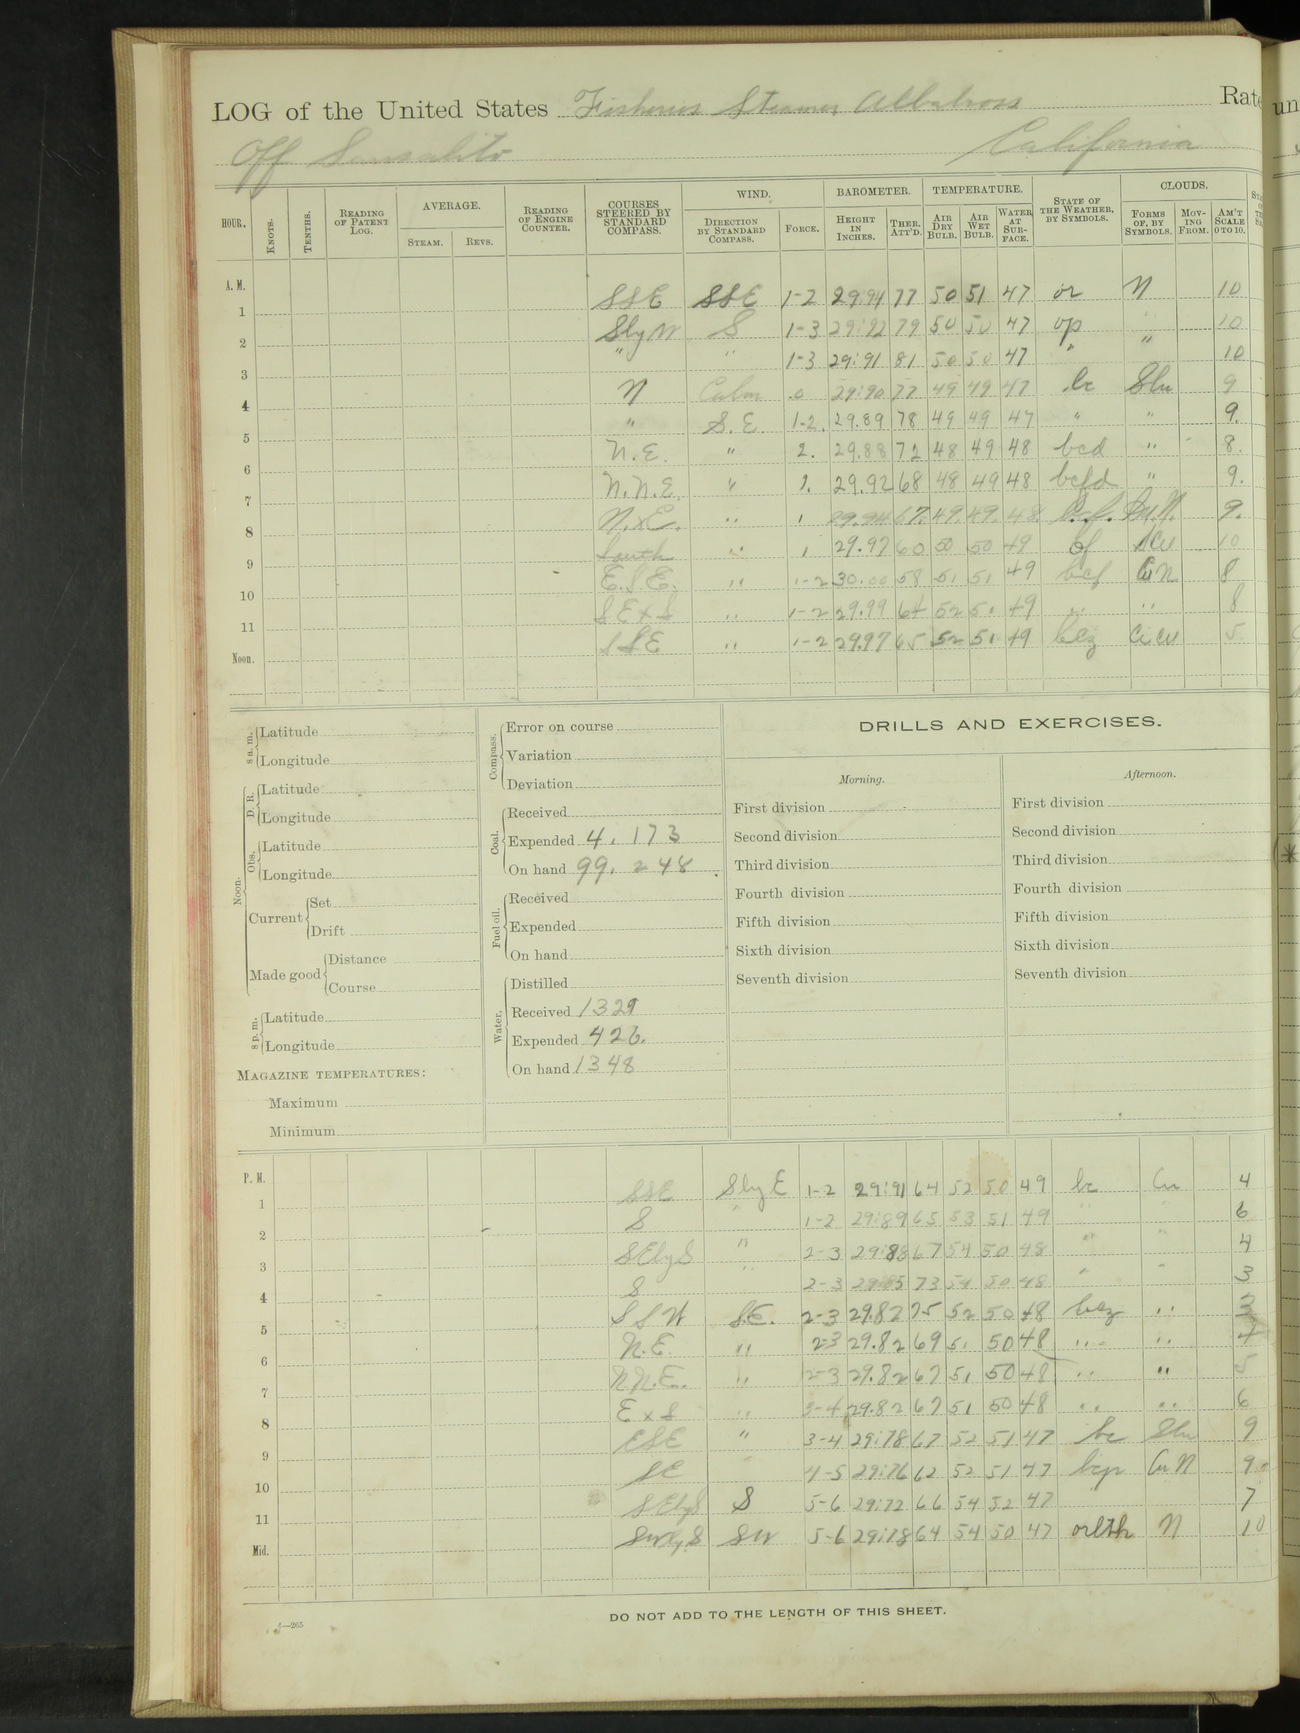 LOG of the United States Fisheries Steamer Albatross Rate
Off Sausalito California
HOUR. KNOTS. TENTHS. READING OF PATENT LOG. AVERAGE. STEAM. REVS. READING OF ENGINE COUNTER. COURSES STEERED BY STANDARD COMPASS. WIND. DIRECTION BY STANDARD COMPASS. FORCE. BAROMETER. HEIGHT IN INCHES. THER. ATT'D. TEMPERATURE. AIR DRY BULB. AIR WET BULB. WATER AT SURFACE. STATE OF THE WEATHER, BY SYMBOLS. CLOUDS. FORMS OF, BY SYMBOLS. MOVING FROM. AM'T SCALE 0 TO 10.
A. M.
1 SSE SSE 1-2 29.94 77 50 51 47 or N 10
2 SbyW S 1-3 29.92 79 50 50 47 op " 10
3 " " 1-3 29.91 81 50 50 47 " " 10
4 N Calm 0 29.90 77 49 49 47 bc 9
5 " S.E 1-2. 29.89 78 49 49 47 " " 9.
6 N.E. " 2. 29.88 72 48 49 48 bcd " 8.
7 N.N.E. " 1. 29.92 68 48 49 48 bcfd " 9.
8 N.xE. " 1 29.94 67. 49. 49. 48. 9.
9 South " 1 29.97 60 50 50 49 of 10
10 E.S.E. " 1-2 30.00 58 51 51 49 bcf Cu N 8
11 SExS " 1-2 29.99 64 52 51 49 " " 8
Noon. SSE " 1-2 29.97 65 52 51 49 bcz Ci Cu 5
8 a. m. Latitude
Longitude
Noon. D. R. Latitude
Longitude
Obs. Latitude
Longitude
Current Set
Drift
Made good Distance
Course
8 p. m. Latitude
Longitude
MAGAZINE TEMPERATURES:
Maximum
Minimum
Compass. Error on course
Variation
Deviation
Coal. Received
Expended 4.173
On hand 99.248
Fuel oil. Received
Expended
On hand
Water. Distilled
Received 1321
Expended 426.
On hand 1348
DRILLS AND EXERCISES.
Morning.
First division
Second division
Third division
Fourth division
Fifth division
Sixth division
Seventh division
Afternoon.
First division
Second division
Third division
Fourth division
Fifth division
Sixth division
Seventh division
P. M.
1 SSE SbyE 1-2 29.91 64 52 50 49 bc Cu 4
2 S " 1-2 29.89 65 53 51 49 " " 6
3 SEbyS " 2-3 29.88 67 54 50 48 " " 4
4 S " 2-3 29.85 73 54 50 48 " " 3
5 SSW S.E. 2-3 29.82 75 52 50 48 bcz " 3
6 N.E. " 2-3 29.82 69 51 50 48 " " 4
7 N.N.E. " 2-3 29.82 67 51 50 48 " " 5
8 ExS " 3-4 29.82 67 51 50 48 " " 6
9 ESE " 3-4 29.78 67 52 51 47 bc 9
10 SE " 4-5 29.76 62 52 51 47 bcp Cu N 9
11 SEbyS S 5-6 29.72 66 54 52 47 7
Mid. SWbyS SW 5-6 29.78 64 54 50 47 orlth N 10
DO NOT ADD TO THE LENGTH OF THIS SHEET.